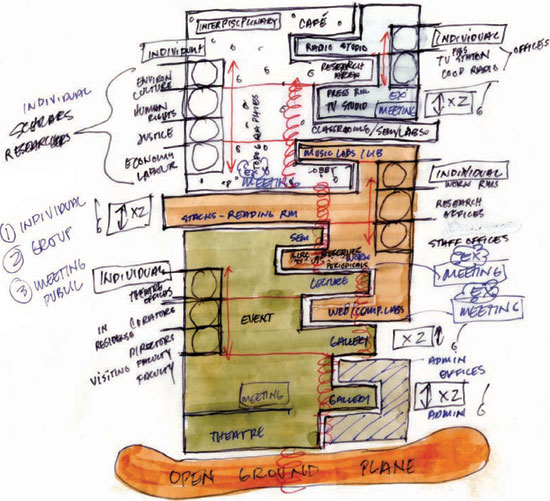 INTERPISCIPLINARY
CAFÉ
INDIVIDUAL
RADIO STUDIO
RESEARCH
AREA
PRESS RM
TV STUDIO
INDIVIDUAL
PBS
TV STATION
COOP RADIO
OFFICES
EX
MEETING
X2
6
CLASSROOMS/SEM/LABS
INDIVIDUAL
SCHOLARS
RESEARCHERS
ENVIRON
CULTURE
HUMAN
RIGHTS
JUSTICE
ECONOMY
LABOUR
EX
MEETING
MUSIC LABS / LIB
INDIVIDUAL
WORK RMS
RESEARCH
OFFICES
STAFF OFFICES
EX
MEETING
EX
MEETING
① INDIVIDUAL
② GROUP
③ MEETING
PUBLIC
6
X2
STACKS - READING RM
SEM
RESERVES
PERIODICALS
LECTURE
WEB/COMP. LABS
INDIVIDUAL
THEATRE
OFFICES
IN
RESIDENSE
CURATORS
DIRECTORS
VISITING
FACULTY
FACULTY
EVENT
GALLERY
X2
6
ADMIN
OFFICES
MEETING
GALLERY
X2
ADMIN
6
THEATRE
OPEN GROUND PLANE